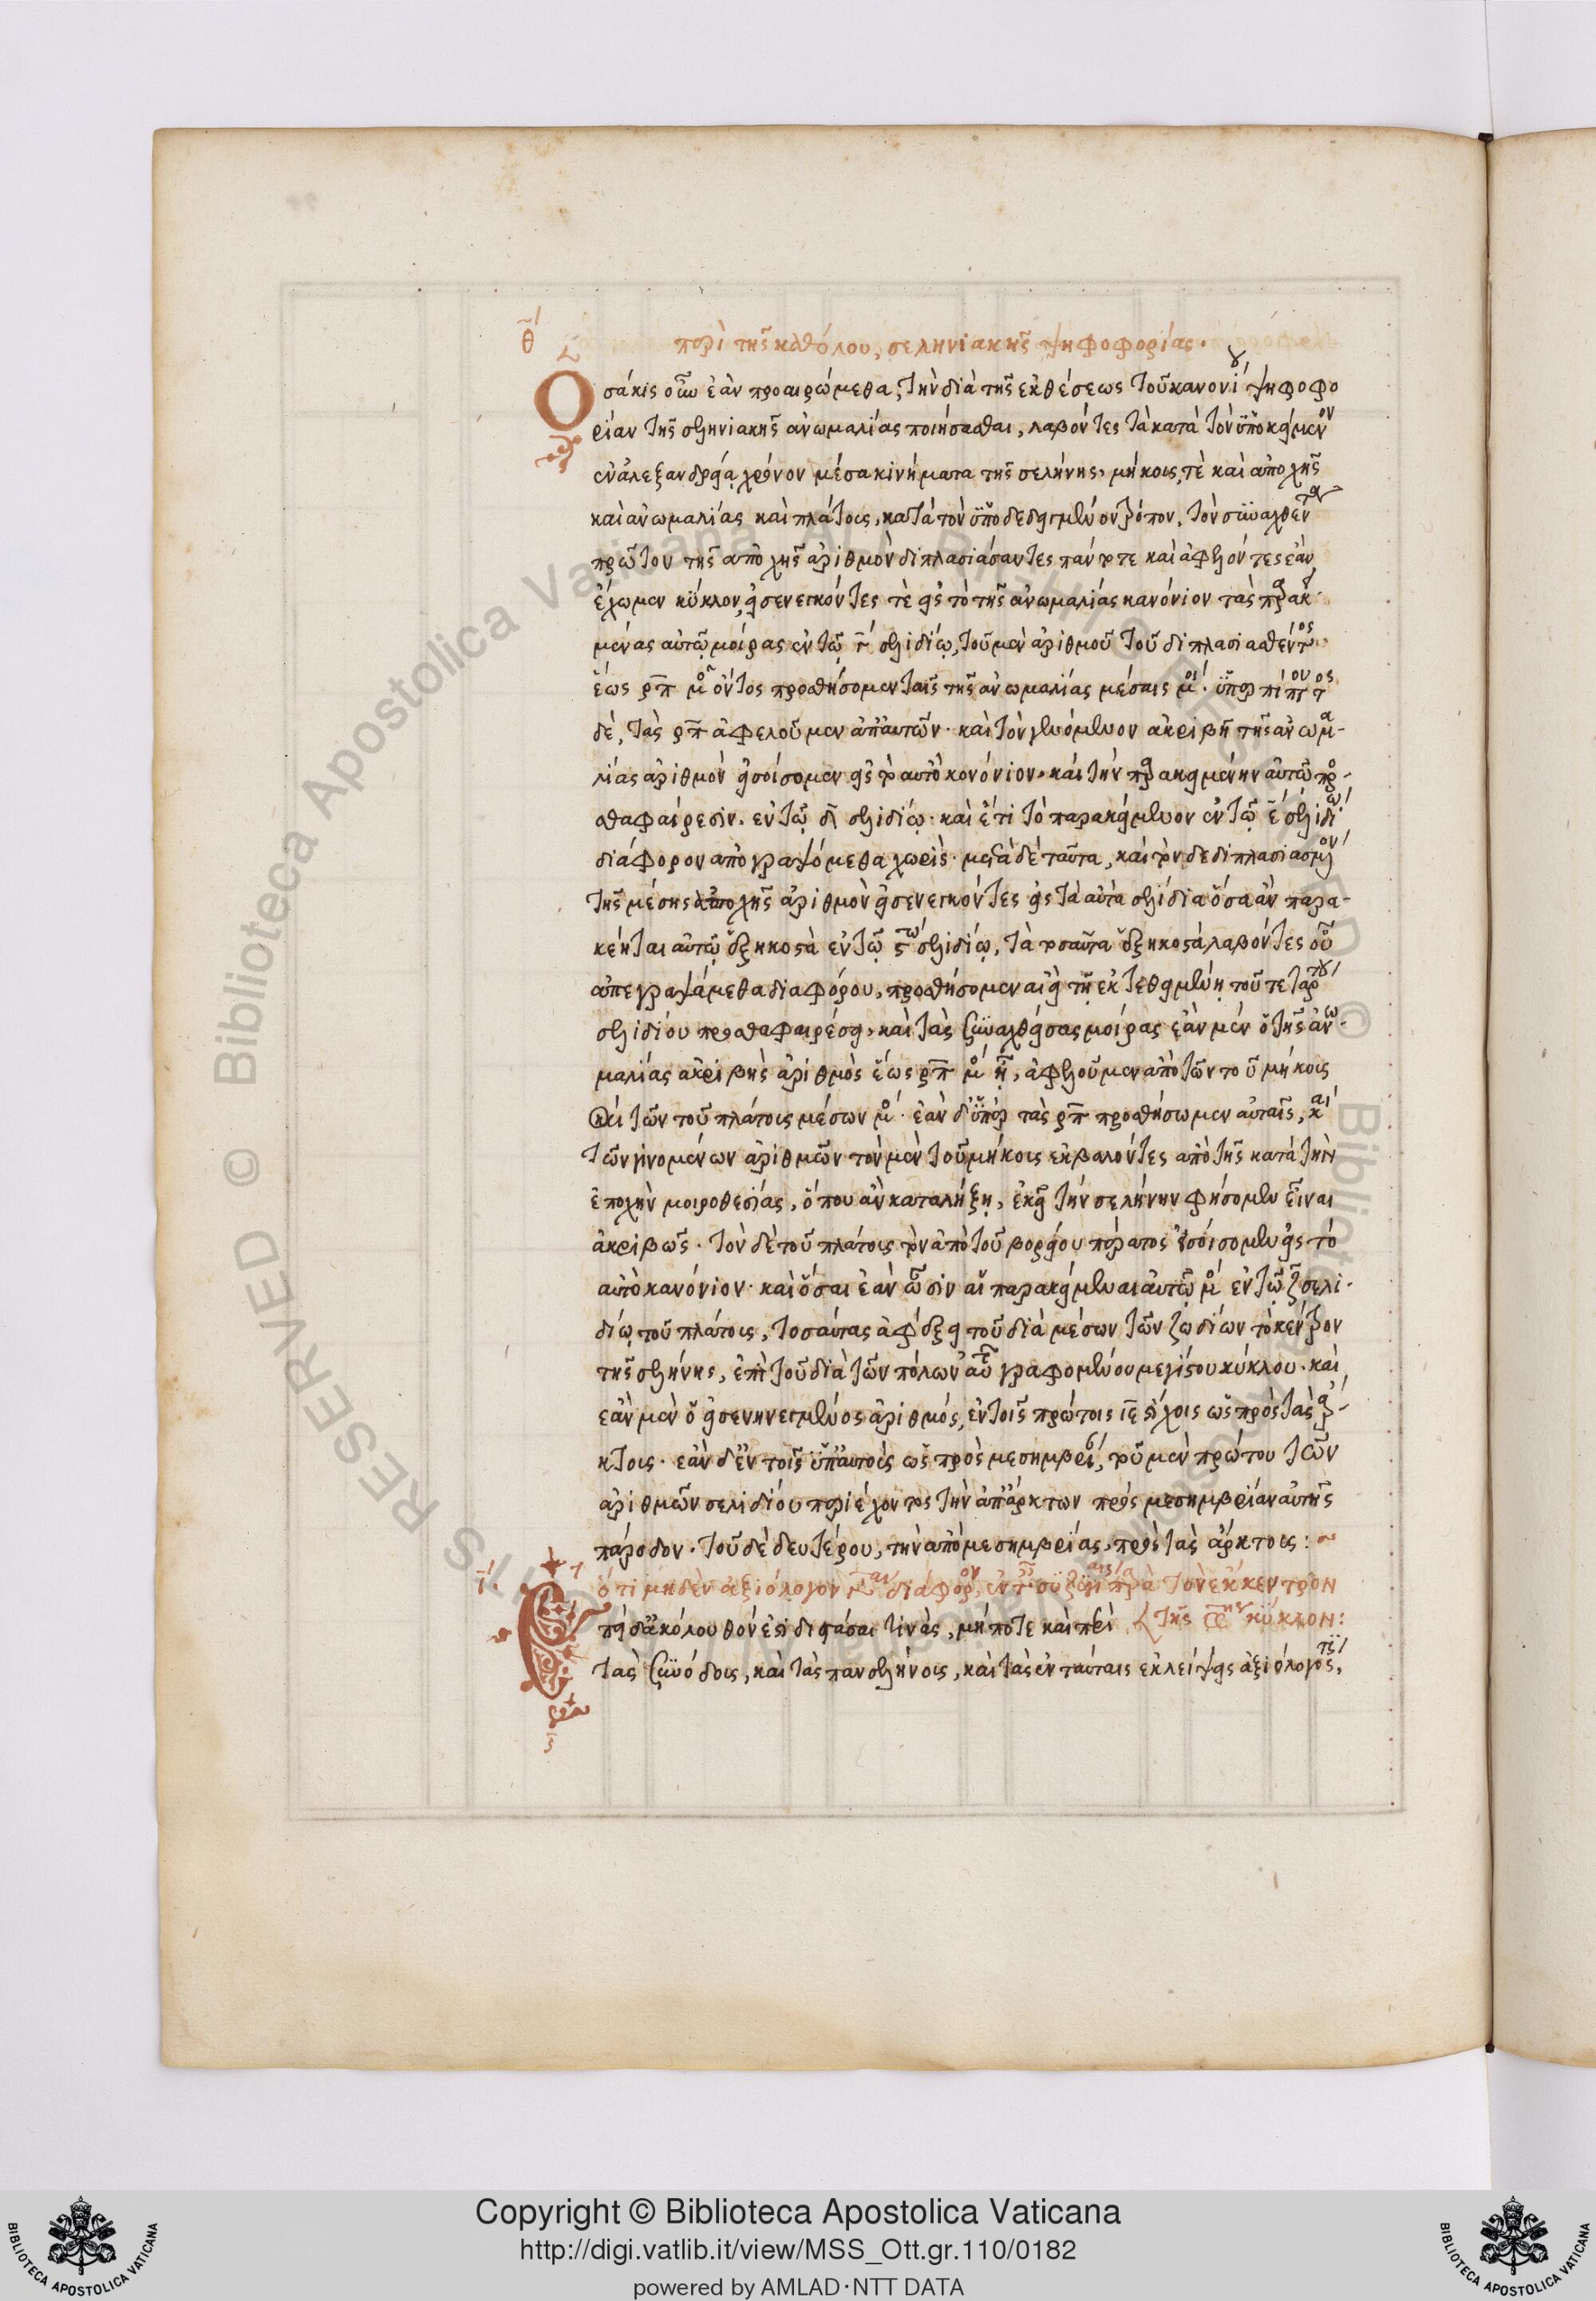 θ΄
περὶ τῆς καθόλου, σεληνιακῆς ψηφοφορίας.
Ὁσάκις οὖν ἐὰν προαιρώμεθα, τὴν διὰ τῆς ἐκθέσεως τοῦ κανονί ψηφοφο
ρίαν τῆς σεληνιακῆς ἀνωμαλίας ποιήσασθαι, λαβόντες τὰ κατὰ τὸν ὑποκείμενον
ἐν ἀλεξανδρείᾳ χρόνον μέσα κινήματα τῆς σελήνης, μήκους τὲ καὶ ἀποχῆς
καὶ ἀνωμαλίας καὶ πλάτους, κατὰ τὸν ὑποδεδειγμένον τρόπον, τὸν συναχθέντα
πρῶτον τῆς ἀποχῆς ἀριθμὸν διπλασιάσαντες πάντοτε καὶ ἀφελόντες ἐὰν
ἔχωμεν κύκλον, εἰσενεγκόντες τὲ εἰς τὸ τῆς ἀνωμαλίας κανόνιον τὰς παρακει
μένας αὐτῷ μοίρας ἐν τῷ γ σελιδίῳ, τοῦ μὲν ἀριθμοῦ τοῦ διπλασιασθέντος
ἕως ρπ μο ὄντος προσθήσομεν ταῖς τῆς ἀνωμαλίας μέσαις μοι. ὑπερπίπτοντος
δὲ, τὰς ρπ ἀφελοῦμεν ἀπ' αὐτῶν. καὶ τὸν γενόμενον ἀκριβῆ τῆς ἀνωμα-
λίας ἀριθμὸν εἰσοίσομεν εἰς τὸ αὐτὸ κανόνιον. καὶ τὴν παρακειμένην αὐτῷ προ-
σθαφαίρεσιν. ἐν τῷ δ σελιδίῳ. καὶ ἔτι τὸ παρακείμενον ἐν τῷ ε σελιδίῳ
διάφορον ἀπογραψόμεθα χωρὶς. μετὰ δὲ ταῦτα, καὶ τὸν δεδιπλασιασμένον
τῆς μέσης ἀποχῆς ἀριθμὸν εἰσενεγκόντες εἰς τὰ αὐτὰ σελίδια ὅσα ἂν παρα-
κέηται αὐτῷ ἑξηκοστὰ ἐν τῷ ς σελιδίῳ, τὰ τοσαῦτα ἑξηκοστὰ λαβόντες οὗ
ἀπεγραψάμεθα διαφόρου, προσθήσομεν αἰεὶ τῇ ἐκτεθειμένῃ τοῦ τετάρτου
σελιδίου προσθαφαιρέσει. καὶ τὰς συναχθείσας μοίρας ἐὰν μὲν ὁ τῆς ἀνω-
μαλίας ἀκριβὴς ἀριθμὸς ἕως ρπ μο ᾖ, ἀφελοῦμεν ἀπὸ τῶν τοῦ μήκους
καὶ τῶν τοῦ πλάτους μέσων μο. ἐὰν δ' ὑπὲρ τὰς ρπ προσθήσωμεν αὐταῖς, καὶ
τῶν γινομένων ἀριθμῶν τὸν μὲν τοῦ μήκους ἐκβαλόντες ἀπὸ τῆς κατὰ τὴν
ἐποχὴν μοιροθεσίας, ὅπου ἂν καταλήξῃ, ἐκεῖ τὴν σελήνην φήσομεν εἶναι
ἀκριβῶς. τὸν δὲ τοῦ πλάτους τὸν ἀπὸ τοῦ βορείου πέρατος εἰσοίσομεν εἰς τὸ
αὐτὸ κανόνιον. καὶ ὅσαι ἐὰν ὦσιν αἱ παρακείμεναι αὐτῷ μο ἐν τῷ ζ σελι-
δίῳ τοῦ πλάτους, τοσαύτας ἀφέξει τοῦ διὰ μέσων τῶν ζωδίων τὸ κέντρον
τῆς σελήνης, ἐπὶ τοῦ διὰ τῶν πόλων αὐτοῦ γραφομένου μεγίστου κύκλου. καὶ
ἐὰν μὲν ὁ εἰσενηνεγμένος ἀριθμός, ἐν τοῖς πρώτοις ιε στίχοις ὡς πρὸς τὰς ἄρ-
κτους. ἐὰν δ' ἐν τοῖς ὑπ' αὐτοὺς ὡς πρὸς μεσημβρί, τοῦ μὲν πρώτου τῶν
ἀριθμῶν σελιδίου περιέχοντος τὴν ἀπ' ἄρκτων πρὸς μεσημβρίαν αὐτῆς
πάροδον. τοῦ δὲ δευτέρου, τὴν ἀπὸ μεσημβρίας. πρὸς τὰς ἄρκτους:
ι΄.
ὅτι μηδὲν ἀξιόλογον γίνεται διάφορον, ἐν ταῖς συζυγίαις παρὰ τὸν ἔκκεντρον
τῆς σελήνης κύκλον:
Ἐπεὶ δ' ἀκόλουθόν ἐστι διστάσαι τινὰς, μήποτε καὶ περὶ
τὰς συνόδους, καὶ τὰς πανσελήνους, καὶ τὰς ἐν ταύταις ἐκλείψεις ἀξιόλογός τις